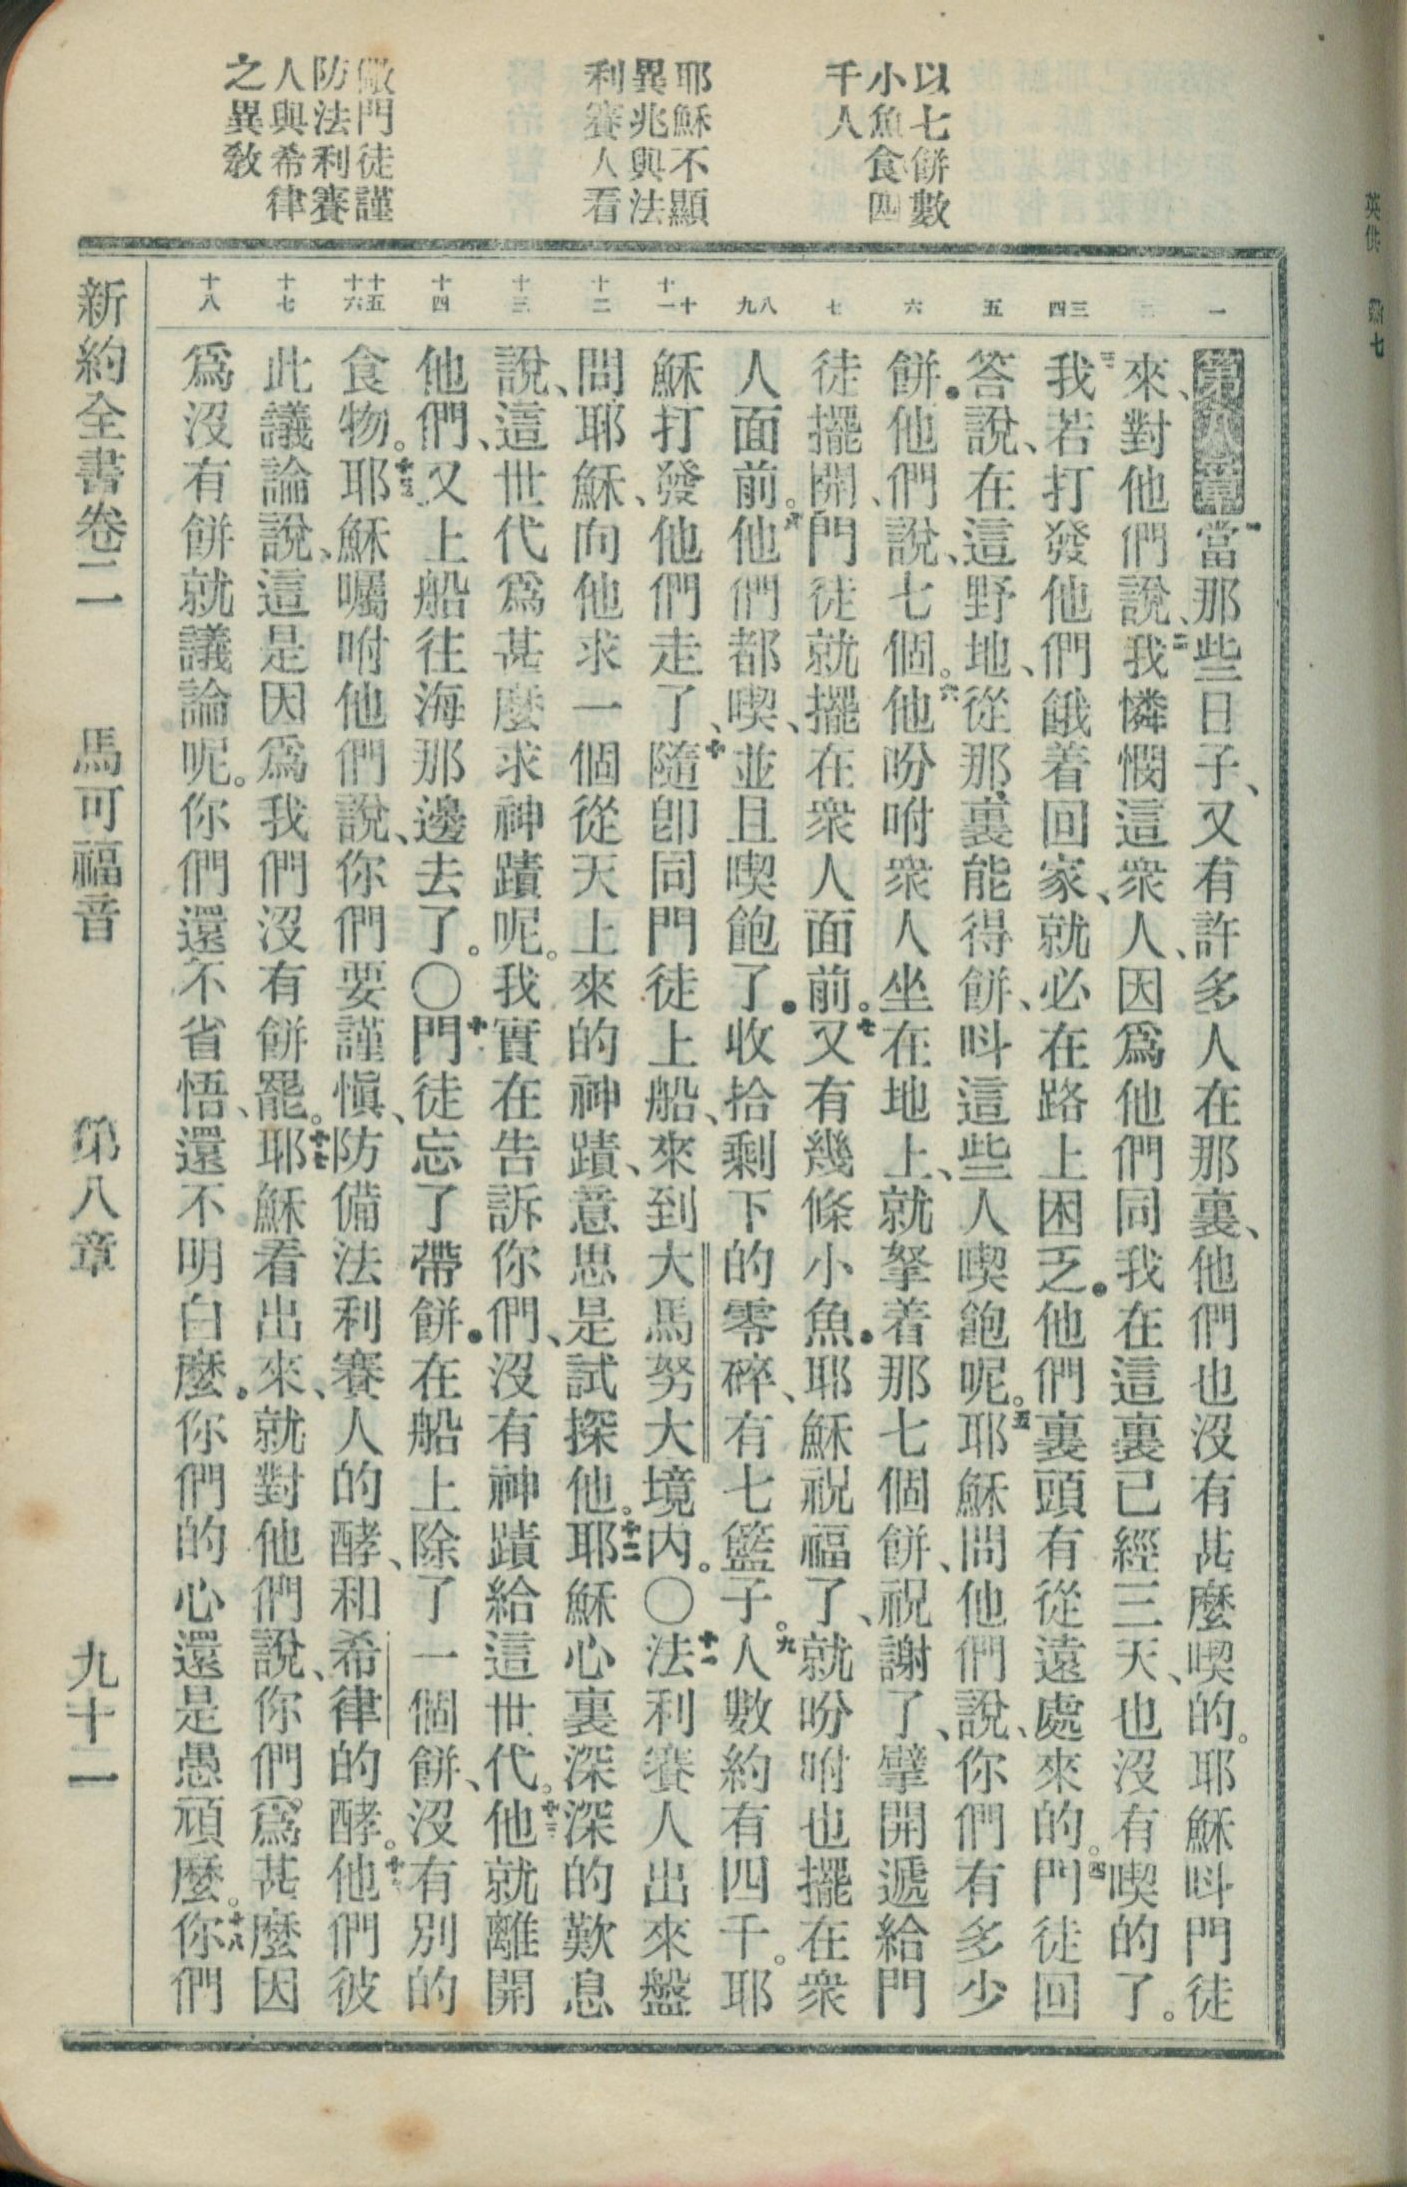 以七餅數
小魚食四
千人
耶穌不顯
異兆與法
利賽人看
儆門徒謹
防法利賽
人與希律
之異教
一
二
三
四
五
六
七
八
九
十
十一
十二
十三
十四
十五
十六
十七
十八
第八章一當那些日子、又有許多人在那裏、他們也沒有甚麼喫的。耶穌呌門徒
來、對他們說、二我憐憫這衆人、因爲他們同我在這裏已經三天、也沒有喫的了。
三我若打發他們餓着回家、就必在路上困乏.他們裏頭有從遠處來的。四門徒回
答說、在這野地、從那裏能得餅、呌這些人喫飽呢。五耶穌問他們說、你們有多少
餅.他們說、七個。六他吩咐衆人坐在地上、就拏着那七個餅、祝謝了、擘開遞給門
徒擺開、門徒就擺在衆人面前。七又有幾條小魚.耶穌祝福了、就吩咐也擺在衆
人面前。八他們都喫、並且喫飽了.收拾剩下的零碎、有七籃子。九人數約有四千。耶
穌打發他們走了、十隨卽同門徒上船、來到大馬努大境內。〇十一法利賽人出來盤
問耶穌、向他求一個從天上來的神蹟、意思是試探他。十二耶穌心裏深深的歎息
說、這世代爲甚麼求神蹟呢。我實在告訴你們、沒有神蹟給這世代。十三他就離開
他們、又上船往海那邊去了。〇十四門徒忘了帶餅.在船上除了一個餅、沒有別的
食物。十五耶穌囑咐他們說、你們要謹愼、防備法利賽人的酵、和希律的酵。十六他們彼
此議論說、這是因爲我們沒有餅罷。十七耶穌看出來、就對他們說、你們爲甚麼因
爲沒有餅就議論呢。你們還不省悟、還不明白麼.你們的心還是愚頑麼。十八你們
新約全書卷二 馬可福音 第八章 九十二
英供 新七